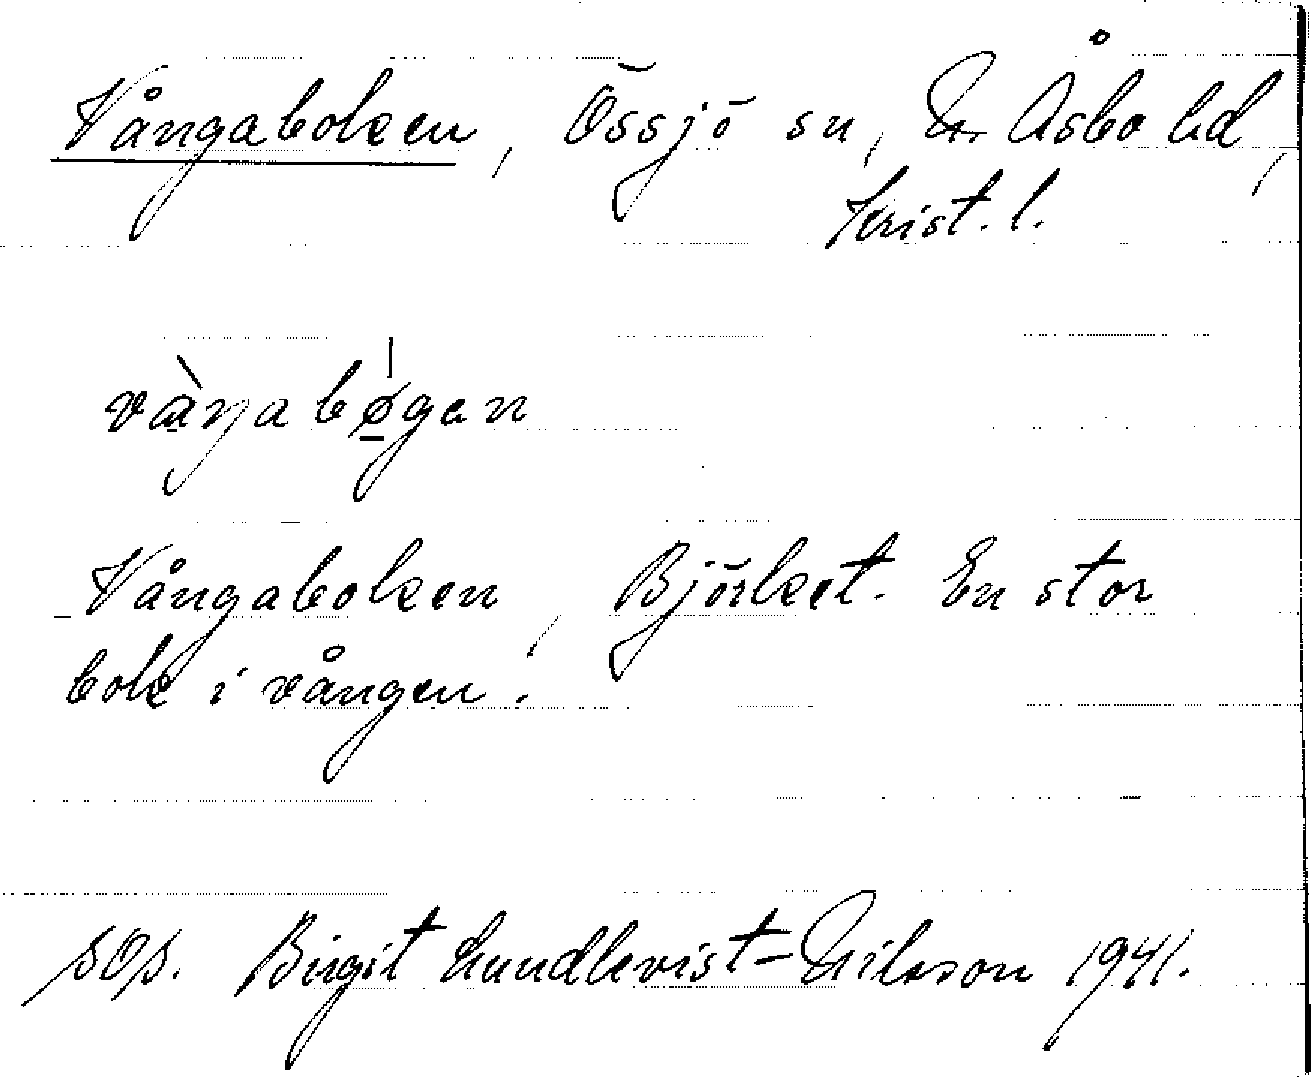 Vångaboken, Össjö sn, N. Åsbo hd,
Krist. l.
vàŋabø̱gan
Vångaboken, Björket. En stor
bok i vången.
sOp. Birgit Lundkvist-Nilsson 1941.